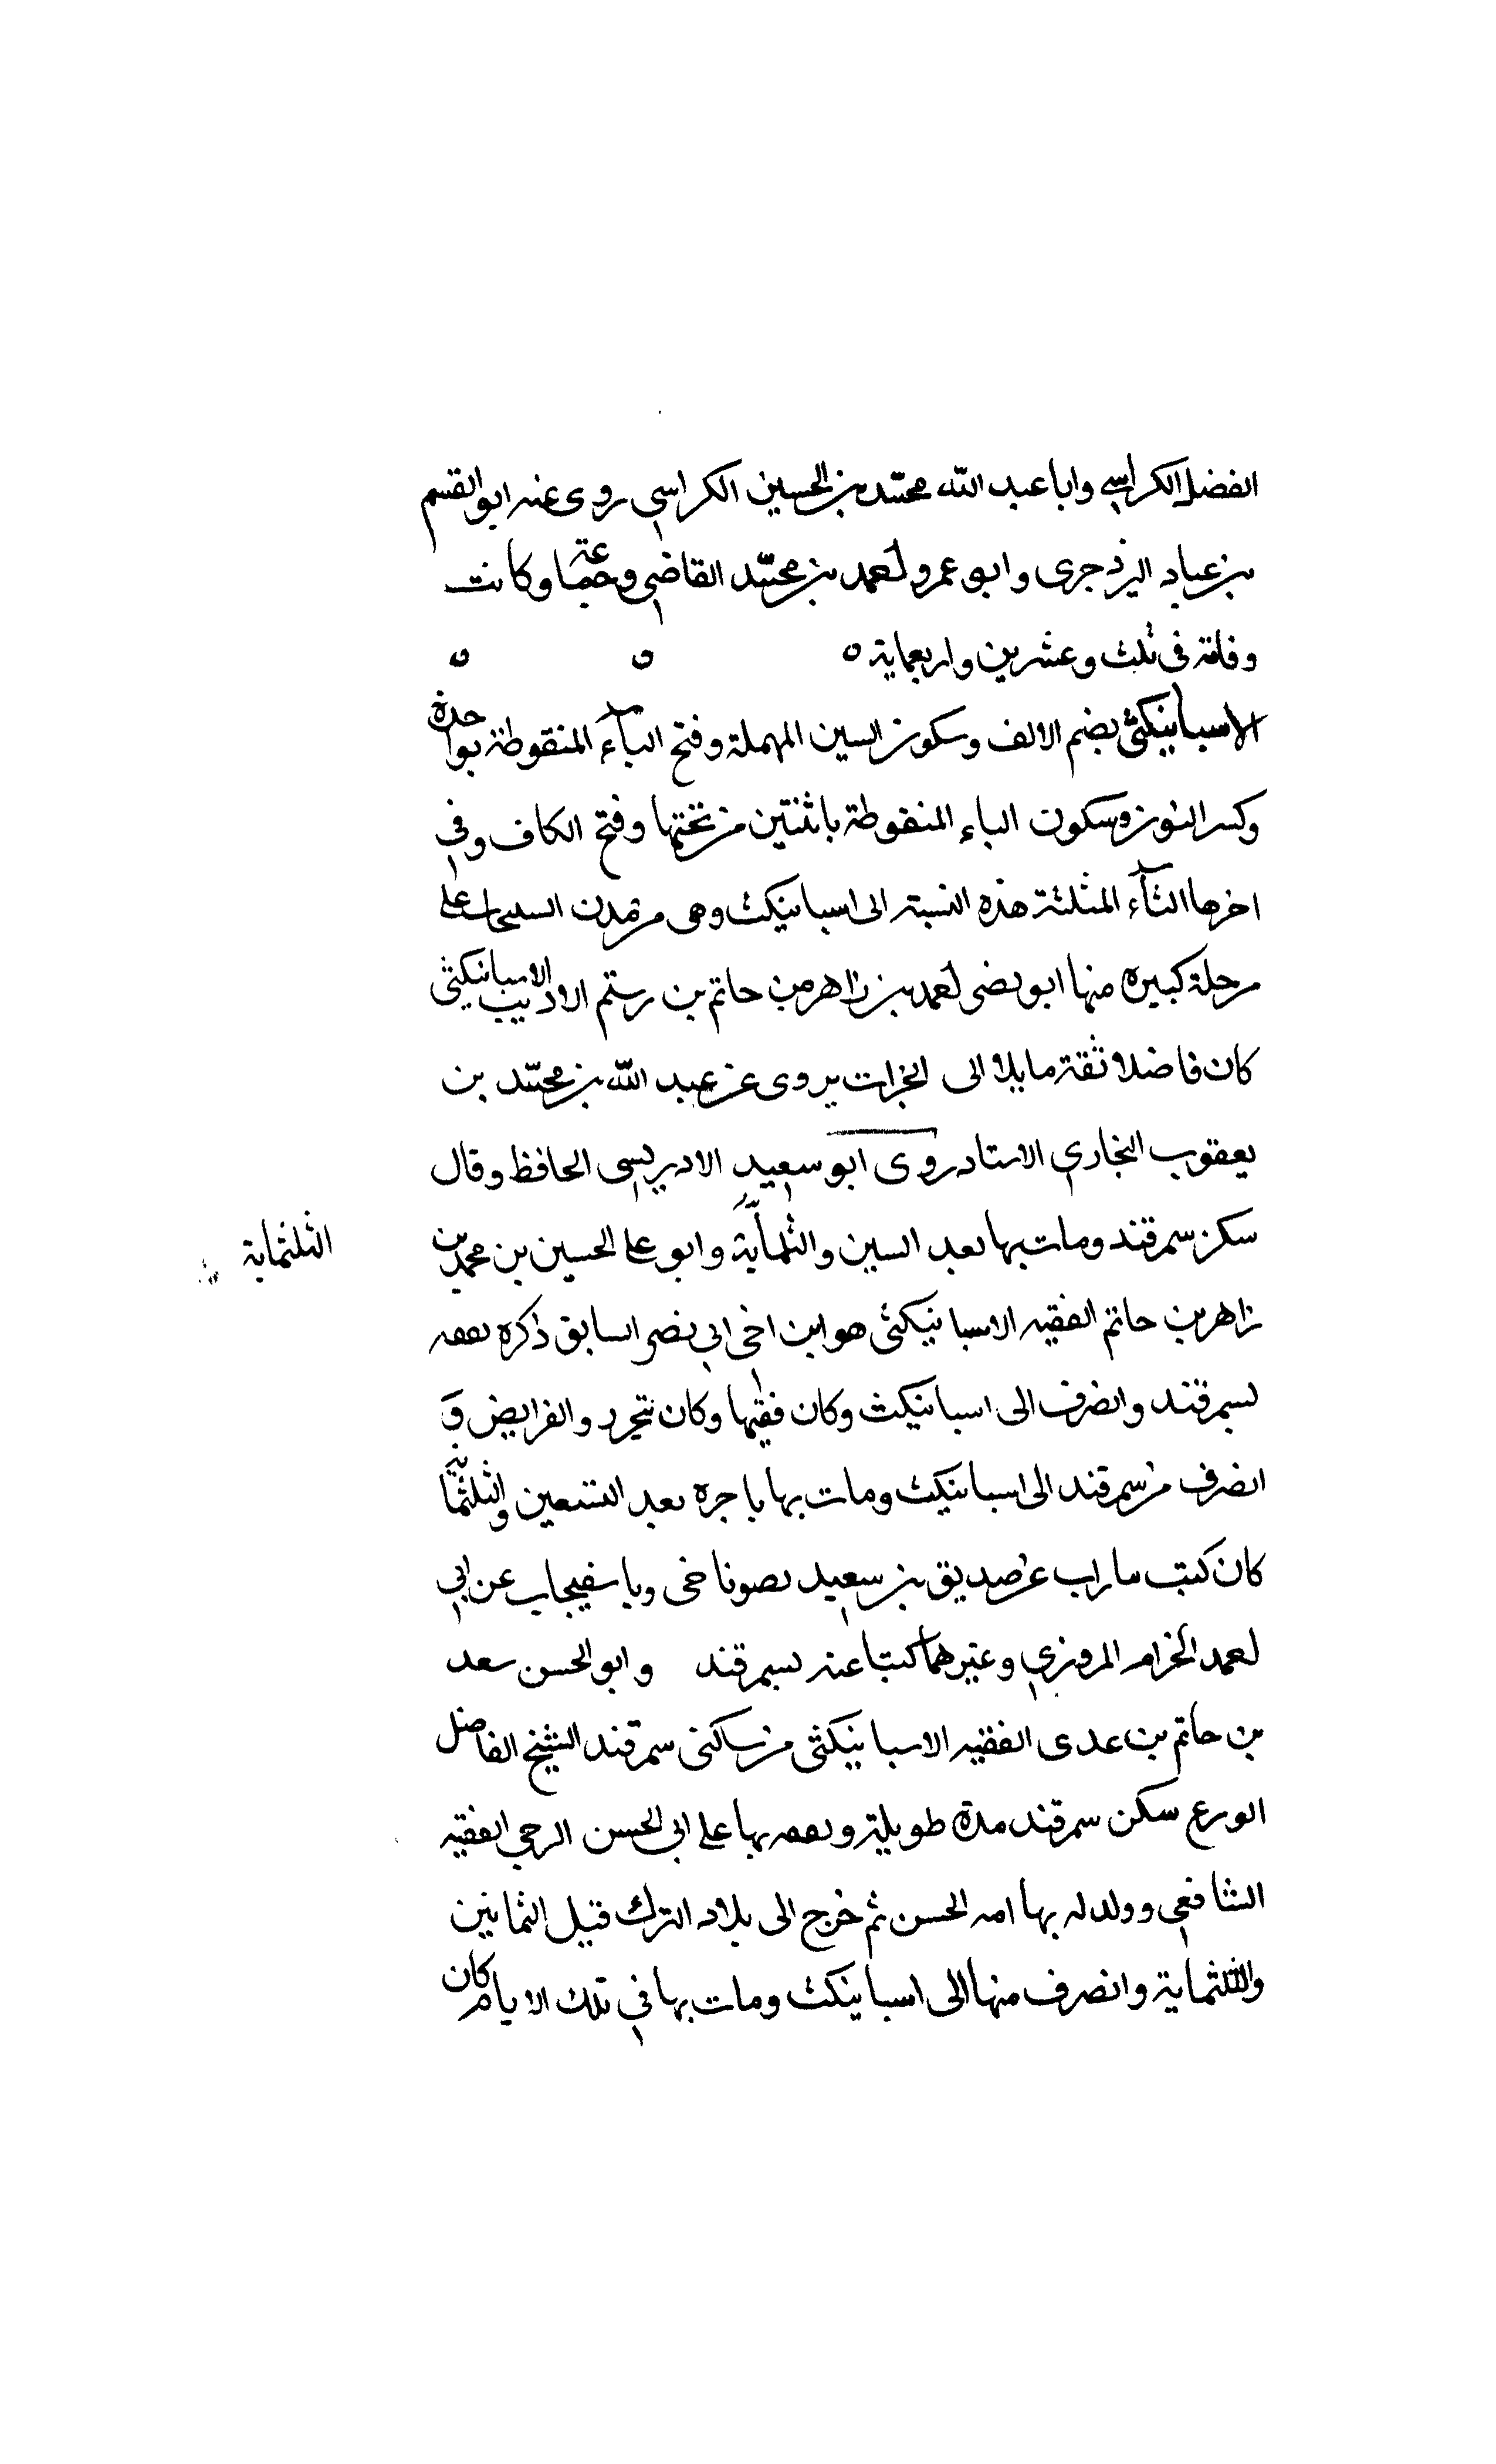 الفضل الكرابسي وابا عبد الله محمد بن الحسين الكرابسي روى عنه ابو القسم
بن عباد اليزدجردى وابو عمرو احمد بن محمد القاضي وجماعة وكانت
وفاته في ثلث وعشرين واربعماية ه ه ه
الاسبانيكثي بضم الالف وسكون السين المهملة وفتح الباء المنقوطة بواحدة
وكسر النون وسكون الياء المنقوطة باثنتين من تحتها وفتح الكاف وفي
اخرها الثاء المثلثة هذه النسبة الى اسبانيكث وهى من مدن على
مرحلة كبيرة منها ابو نصر احمد بن زاهر بن حاتم بن رستم الاديب الاسبانيكثي
كان فاضلا ثقة مايلا الى الخيرات يروى عن عبد الله بن محمد بن
يعقوب البخاري الاستاد روى ابو سعيد الادريسى الحافظ وقال
سكن سمرقند ومات بها بعد الستين والثلثماية وابو على الحسين بن محمد بن
الثلثماية
زاهر بن حاتم الفقيه الاسبانيكثى هو ابن اخى ابي نصر السابق ذكره تفقه
بسمرقند وانصرف الى اسبانيكث وكان فقيها وكان والفرايض و
انصرف من سمرقند الى اسبانيكث ومات بها باخرة بعد التسعين والثلثماية
كان كتب عن صديق بن سعيد وباسفيجاب عن ابي
احمد المروزي وغيرهما كتبنا عنه بسمرقند وابو الحسن سعد
بن حاتم بن عدى الفقيه الاسبانيكثى من ساكنى سمرقند الشيخ الفاضل
الورع سكن سمرقند مدة طويلة وتفقه بها على ابى الحسن الفقيه
الشافعي وولد له بها ابنه الحسن ثم خرج الى بلاد الترك قبل الثمانين
والثلثماية وانصرف منها الى اسبانيكث ومات بها في تلك الايام كان